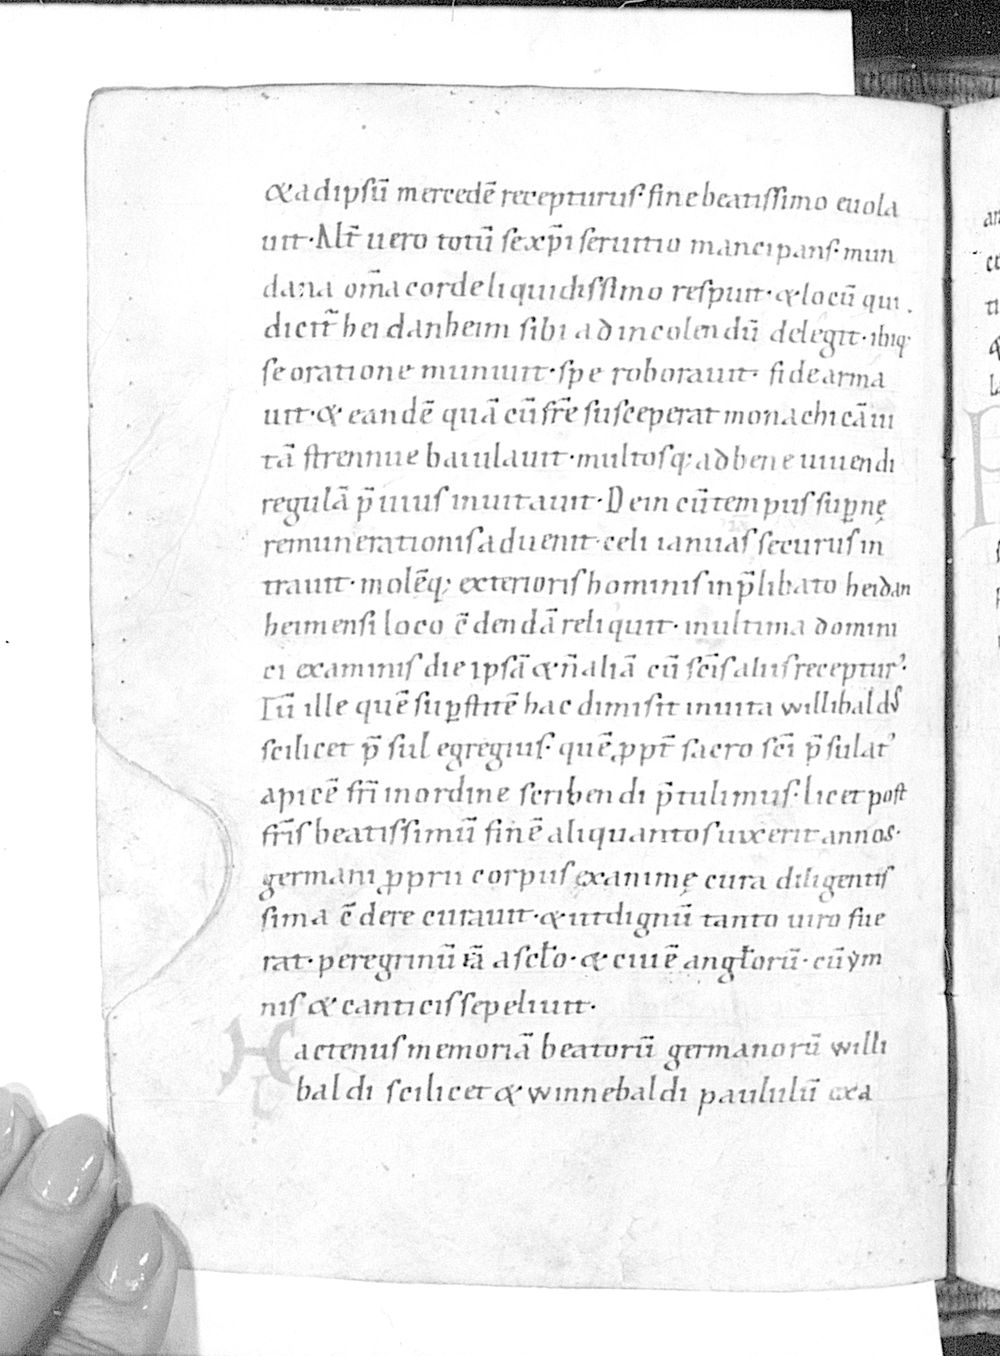 &adipsū mercedē recepturus· fine beatissimo euola
uit· Alt̄ uero totū se xp̄i seruitio mancipans· mun
dana om̄a corde liquidissimo respuit· & locū qui
dicit̄ heidanheim sibi ad incolendū delegit· ibiq;
se oratione muniuit· spe roborauit· fide arma
uit· & eandē quā cū fr̄e susceperat monachicā ui
tā strennue baiulauit· multosq; ad bene uiuendi
regulā p̄uius inuitauit· Dein cū tempus supnę
remunerationis aduenit· celi ianuas securus in
trauit· molēq; exterioris hominis in p̄libato heidan
heimensi loco c̄dendā reliquit· in ultima domini
ci examinis die ipsā & n̄ aliā cū sc̄is aliis receptur᾽·
Tū ille quē supstitē hac dimisit in uita willibalds
scilicet p̄sul egregius· quē ꝓpt̄ sacro sc̄i p̄sulat᾽
apicē fr̄i in ordine scribendi p̄tulimus· licet post
fr̄is beatissimū finē aliquantos uixerit annos·
germani ꝓprii corpus exanimę cura diligentis
sima c̄dere curauit· & ut dignū tanto uiro fue
rat· peregrinū iā a scło· & ciuē angłorū· cū ym
nis & canticis sepeliuit·
Hactenus memoriā beatorū germanorū willi
baldi scilicet & winnebaldi paululū exa